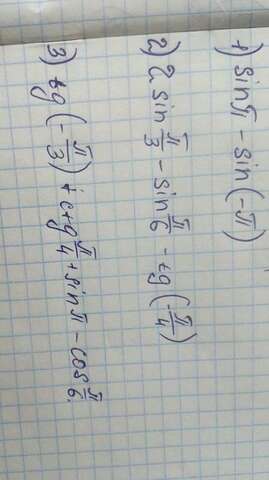 1) sin π - sin (-π)
2) 2 sin π/3 - sin π/6 - tg (-π/4)
3) tg (-π/3) + ctg π/4 + sin π - cos π/6.